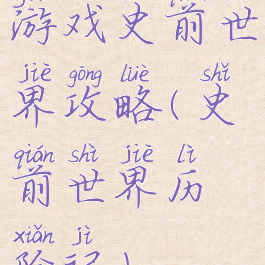 游戏史前世
jiè gōng lüè shǐ
界攻略(史
qián shì jiè lì
前世界历
xiǎn jì
险记)